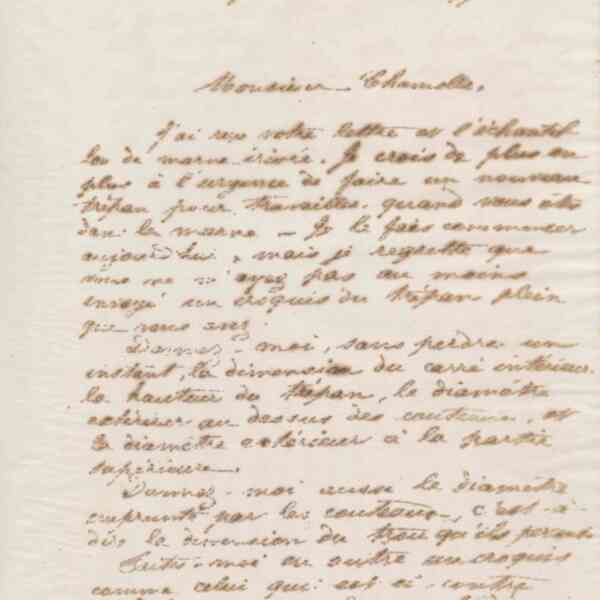 Monsieur Chamolle,
J'ai reçu votre lettre et l'échantil
lon de marne irisée. Je crois de plus en
plus à l'urgence de faire un nouveau
trépan pour travailler quand vous êtes
dans la marne - Je le fais commencer
aujourd'hui, mais je regrette que
vous ne m'ayez pas au moins
envoyé un croquis du trépan plein
que vous avez.
Donnez-moi, sans perdre un
instant, la dimension du carré intérieur
la hauteur du trépan, le diamètre
extérieur au dessus des couteaux, et
le diamètre extérieur à la partie
supérieure.
Donnez-moi aussi le diamètre
emprunté par les couteaux, c'est-à-
dire la dimension du trou qu'ils
Faites-moi en outre un croquis
comme celui qui est ci-contre